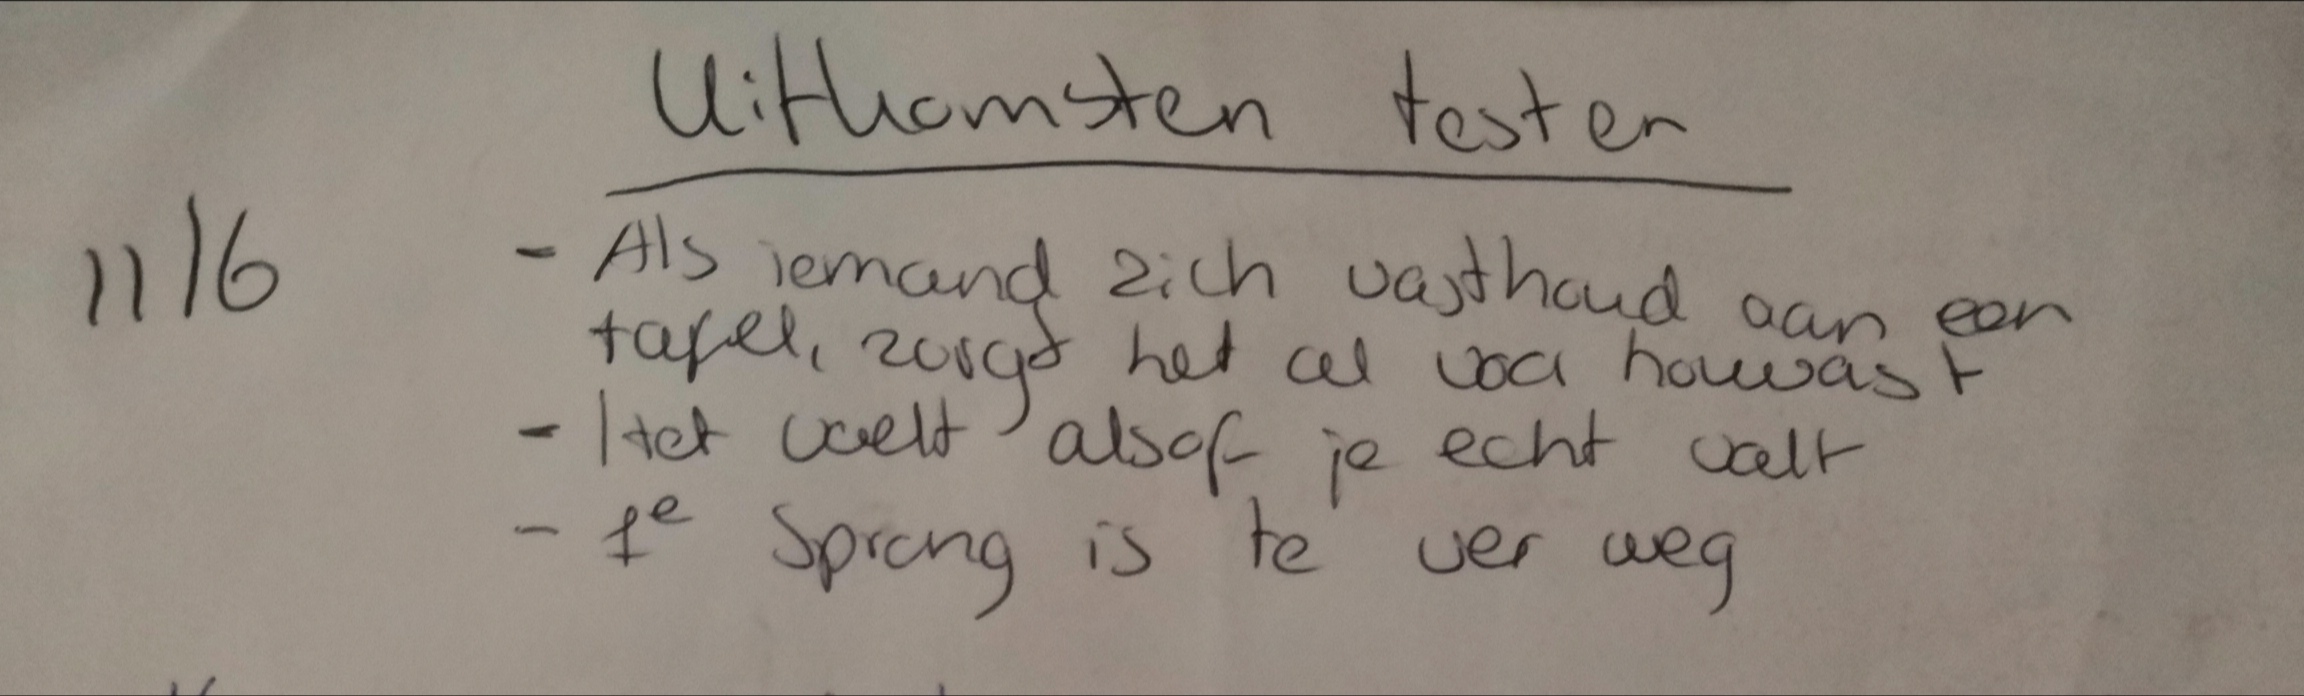 Uitkomsten testen
11/6
- Als iemand zich vasthoud aan een
tafel, zorgt het al voor houvast
- Het voelt alsof je echt valt
- 1e Sprong is te ver weg